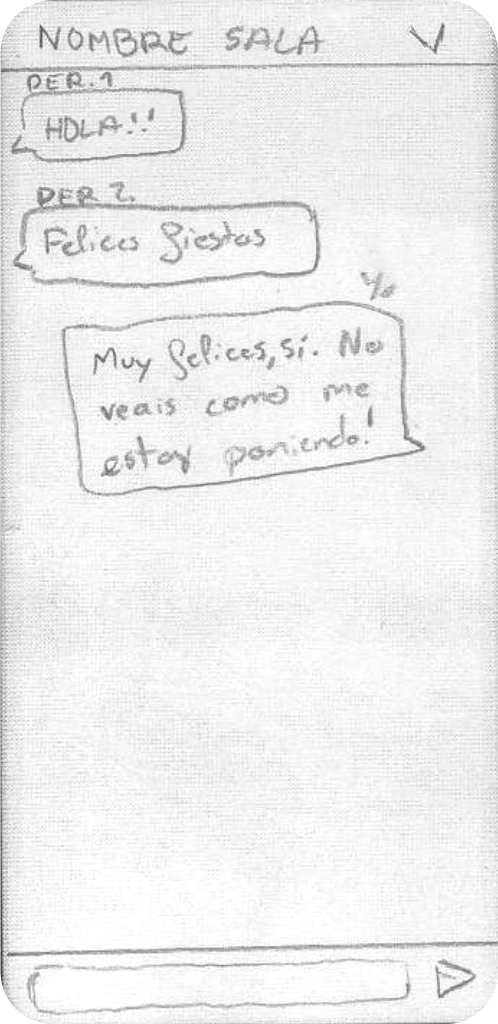 NOMBRE SALA
PER.1
HOLA!!
PER 2.
Felices fiestas
Yo
Muy felices, sí. No
veais como me
estoy poniendo!